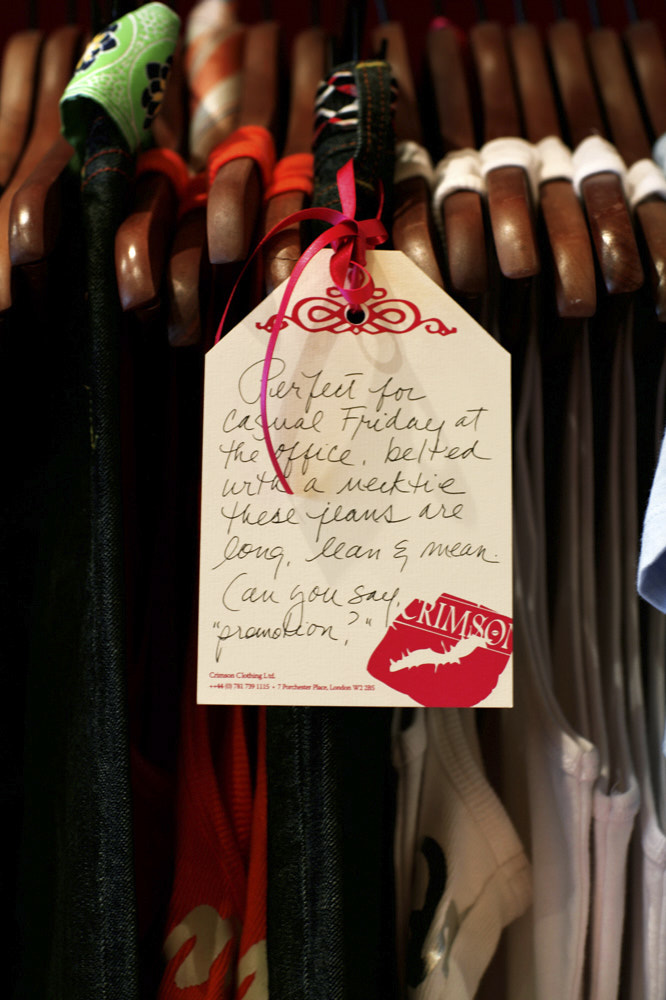 Perfect for
casual Friday at
the office, belted
with a necktie
these jeans are
long, lean & mean.
Can you say,
"promotion?"
CRIMSON
Crimson Clothing Ltd.
++44 (0) 781 739 1115 • 7 Porchester Place, London W2 2BS